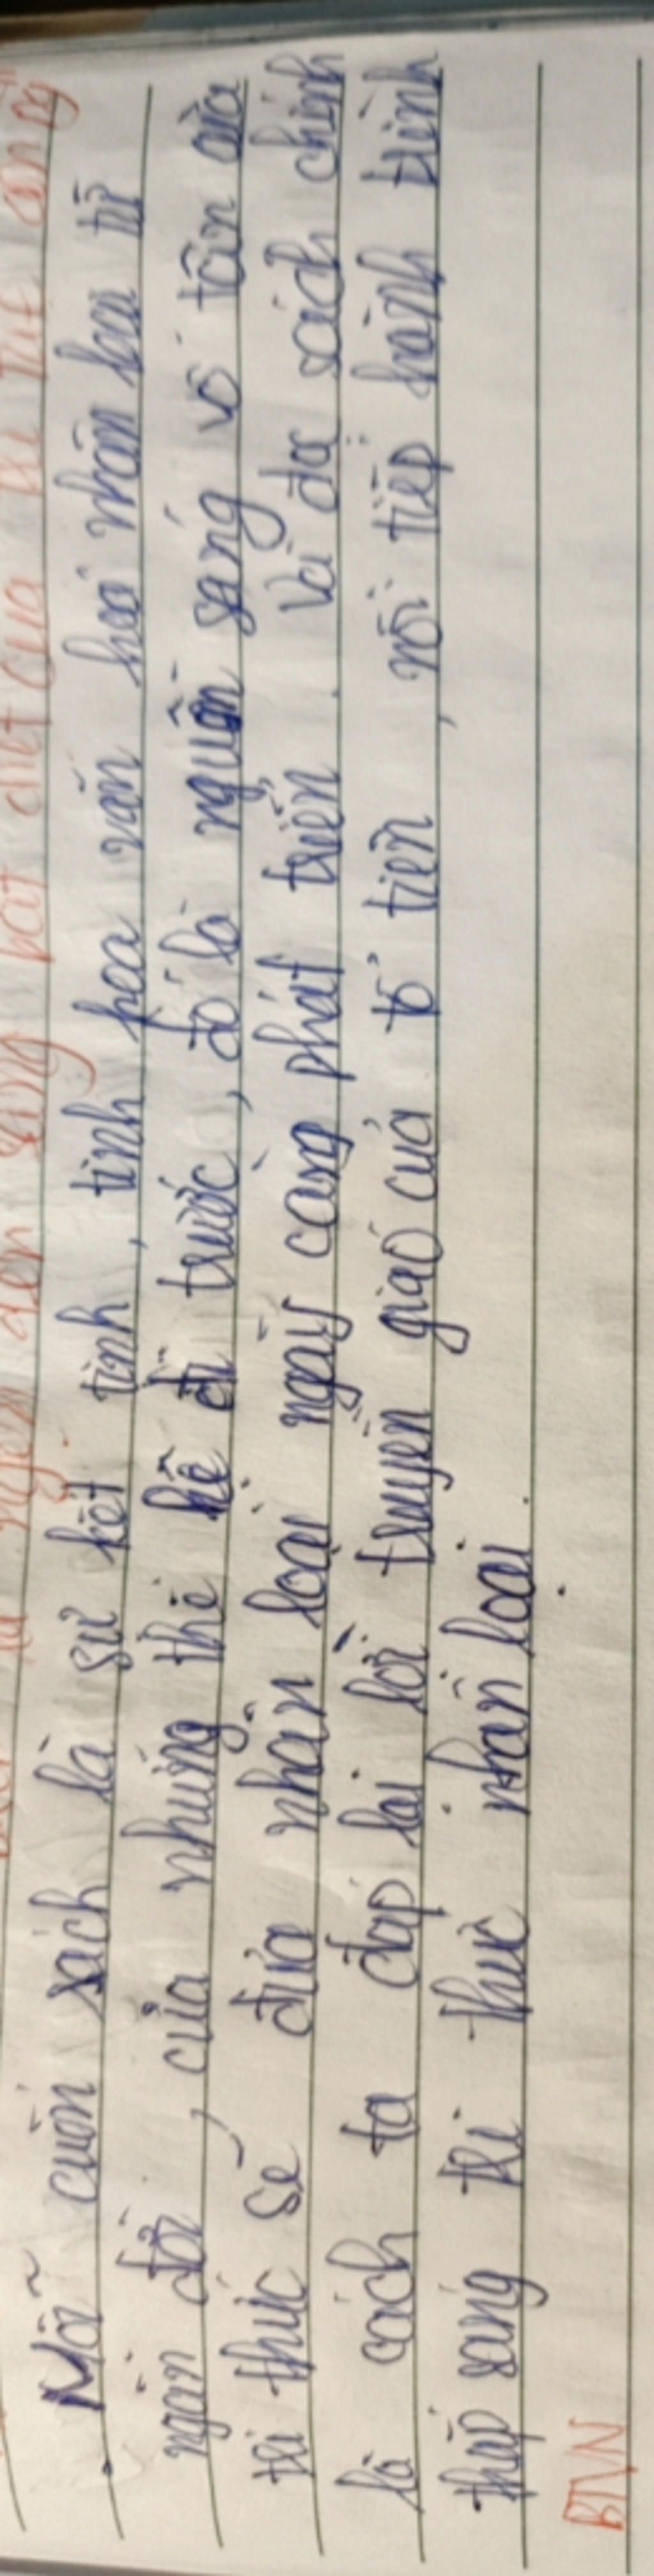 Mỗi cuốn sách là sự kết tinh, tinh hoa văn hoá nhân loại từ
ngàn đời, của những thế hệ đi trước, đó là nguồn sáng vô tận của
tri thức sẽ đưa nhân loại ngày càng phát triển. Và đọc sách chính
là cách ta đáp lại lời truyền giáo của tổ tiên, nối tiếp hành trình
thắp sáng tri thức nhân loại.
BTVN